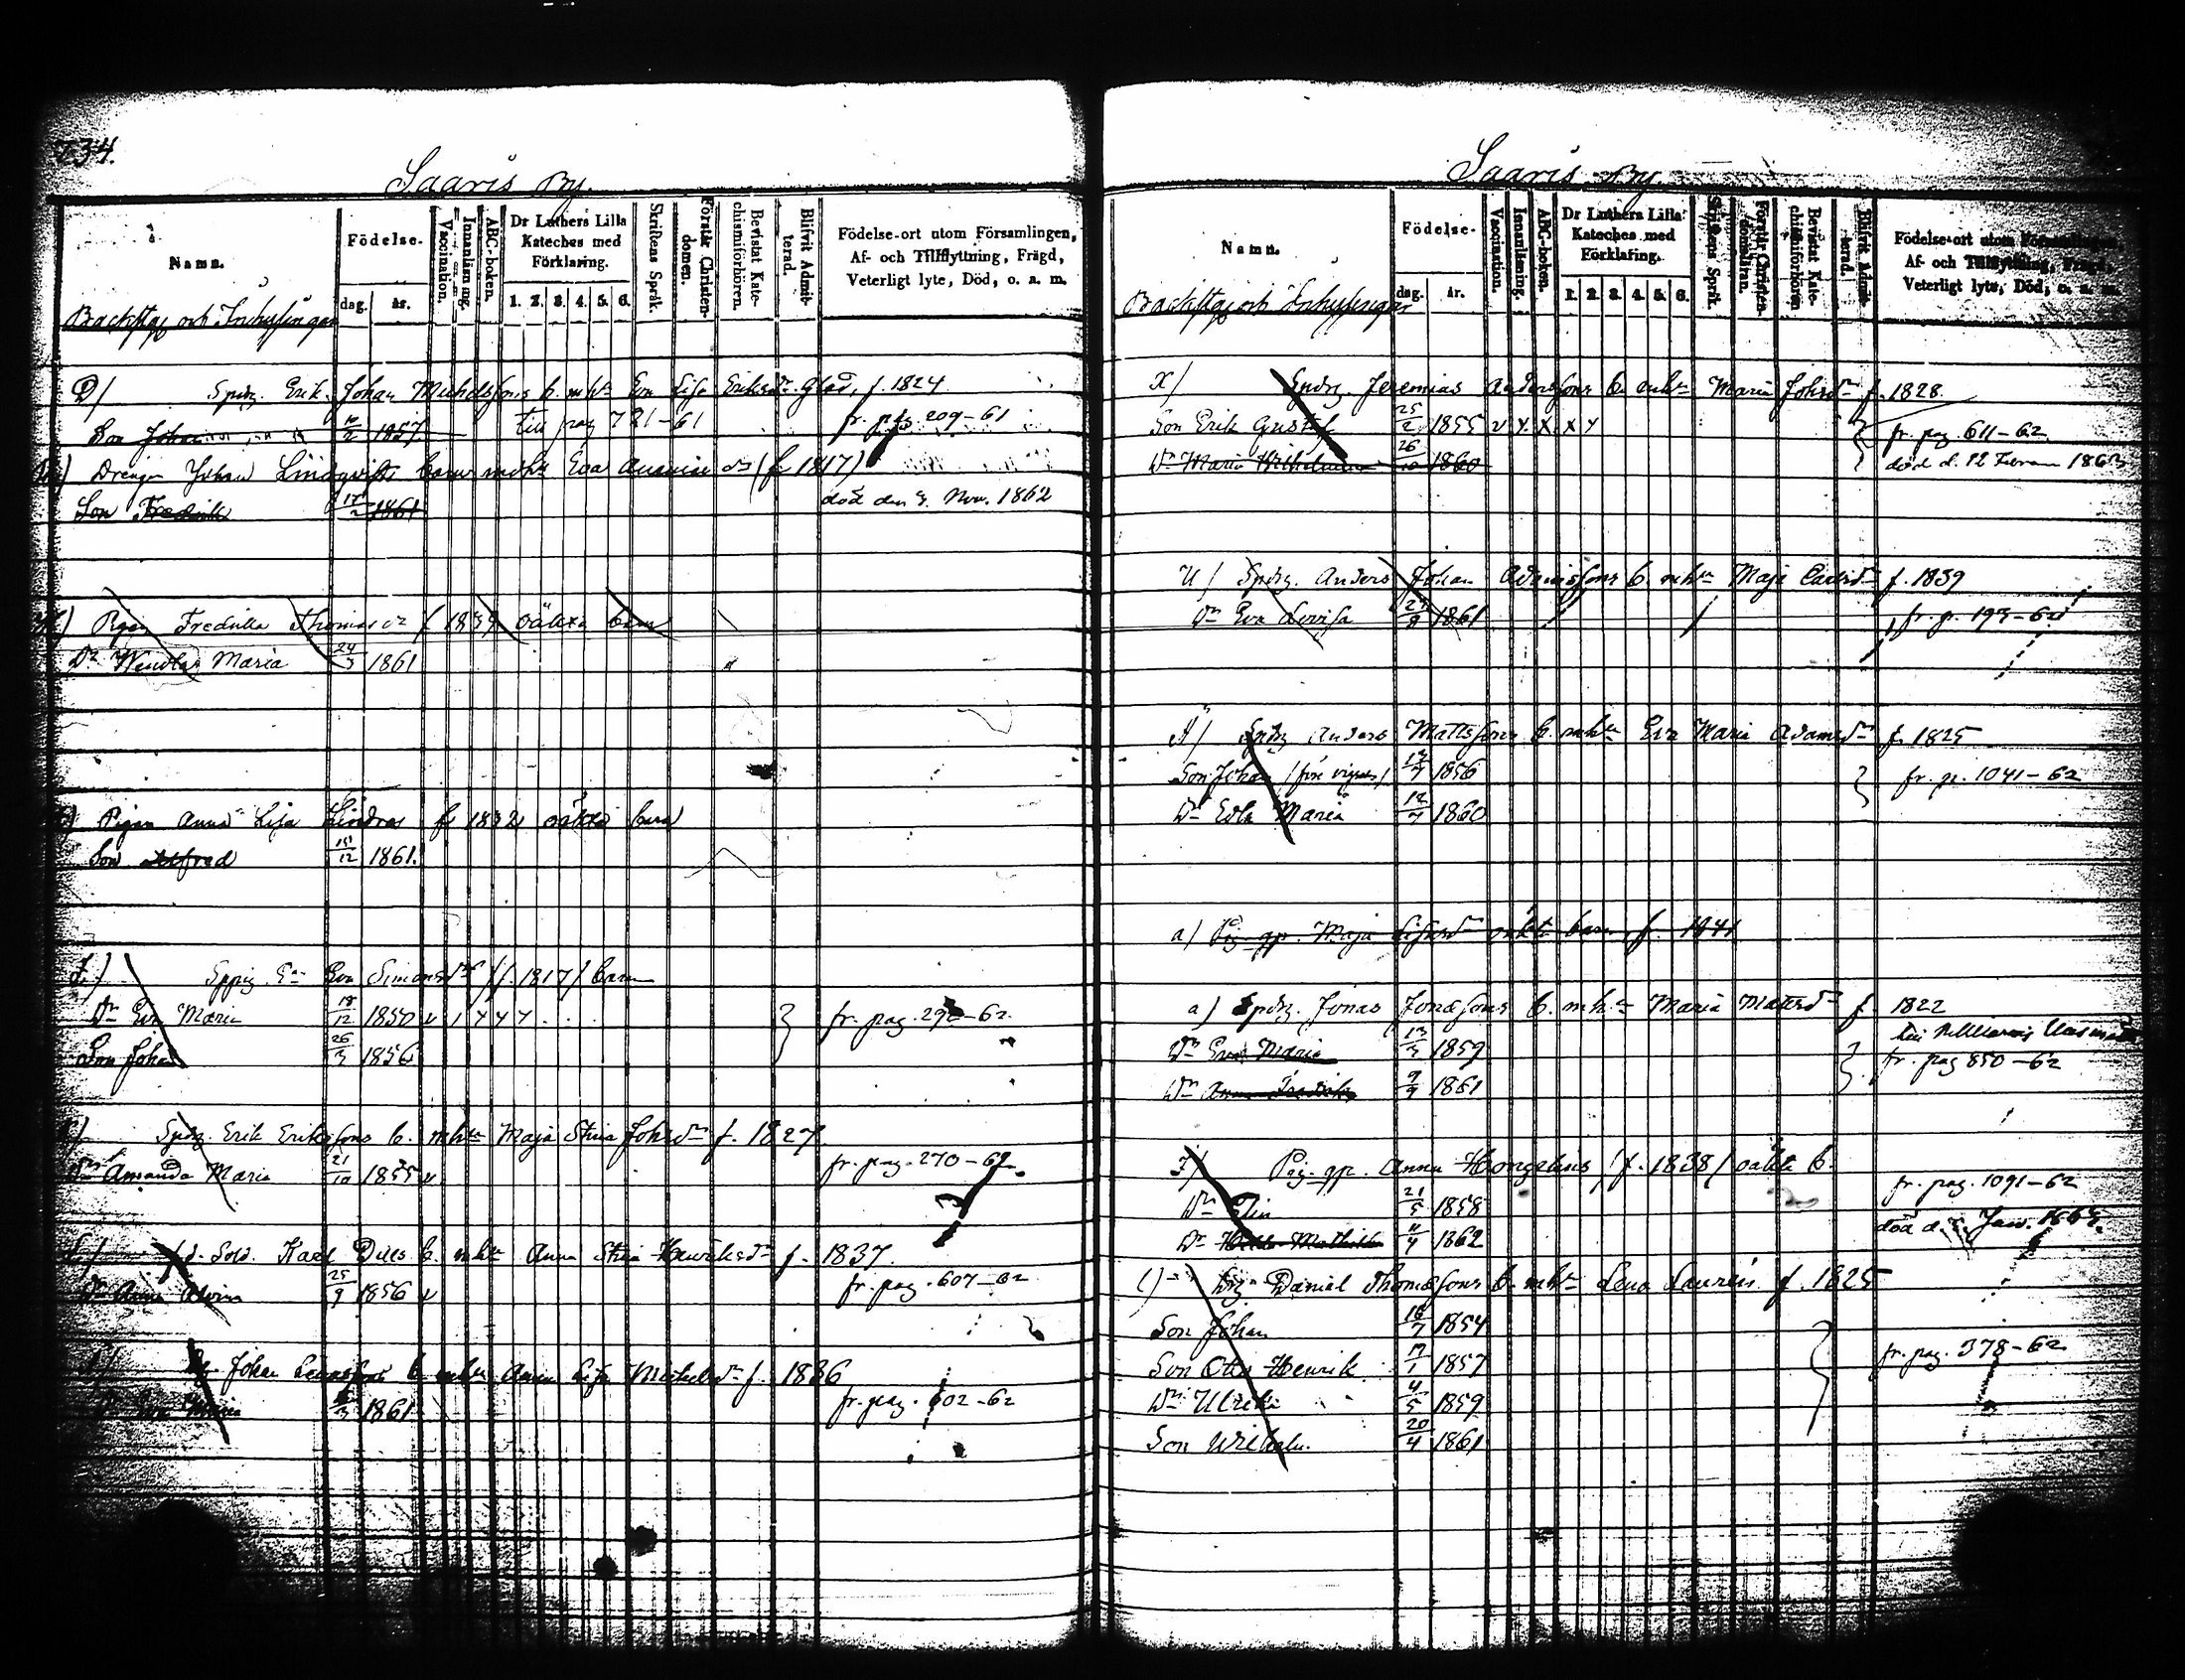 734.
Saaris By.
Namn.
Födelse-
dag. år.
Vaccination.
Innanläsning.
ABC-boken.
Dr Luthers Lilla Kateches med Förklaring.
1. 2. 3. 4. 5. 6.
Skriftens Språk.
Förstår Christendomen.
Bevistat Katechismiförhören.
Blifvit Admitterad.
Födelse-ort utom Församlingen,
Af- och Tillflyttning, Frägd,
Veterligt lyte, Död, o. a. m.
Backstug och Inhysingar
D/ Spdrg. Erik Johan Michelssons b. m. hu Eva Lisa Eriksdr Glad, f. 1824
Son Johan 2 1857 till pag 721-61 fr. pag. 209-61
Drengen Johan Lindqvists barn m hu Eva (f 1817)
Son Fredrik 2 1861 död den 3. Nov. 1862
Pigan Fredrika Thomasdr f 1839 oäkta barn
Dr Wendla Maria 24/3 1861
Pigan Anna Lisa Lindros f 1832 oäkta barn
Son Alfred 15/12 1861.
Eva Simonsdr (f. 1817) barn
Dr Eva Maria 18/12 1850 v fr. pag. 292-62.
Son Johan 26/3 1856
Spdrg. Erik Erikssons b. m hu Maja Stina Johsdr f. 1827.
Dr Amanda Maria 21/10 1855 v fr. pag. 270-62.
f.d. Sold. Karl b. m hu Anna Stina Henriksdr f. 1837.
Dr Anna 25/9 1856 v fr. pag. 607-62
Johan b. m hu Anna Lisa Michelsdr f. 1836
Dr Eva Maria 3 1861 fr. pag. 602-62
Saaris By.
Namn.
Födelse-
dag. år.
Vaccination.
Innanläsning.
ABC-boken.
Dr Luthers Lilla Kateches med Förklaring.
1. 2. 3. 4. 5. 6.
Skriftens Språk.
Bevistat Katechismiförhören
Blifvit Admitterad.
Födelse-ort utom Församlingen,
Af- och Tillflyttning, Frägd,
Veterligt lyte, Död, o. a. m.
Backstug och Inhysingar
X/ Spdrg. Jeremias Anderssons b. m hu Maria Johsdr f. 1828.
Son Erik Gustaf 25/2 1855 v x x x x fr. pag 611-62
Dr Maria Wilhelmina 26/10 1860 död d. 12 1863
U/ Spdrg. Anders Johan Adamssons b. m hu Maja Carlsdr f. 1839
Dr Eva Lovisa 27/8 1861 fr. p. 193-62
Ä/ Spdrg Anders Mattssons b. m hu Eva Maria Adamsdr f. 1825
Son Johan (före vigseln) 7 1856 fr. p. 1041-62
Dr Edla Maria 12/7 1860
a/ Pig. Maja oäkta barn f. 1841
a) Spdrg. Jonas Jonassons b. m. hu Maria Matsdr f 1822
Dr Eva Maria 13/3 1859
Dr Anna Fredrika 9/9 1861 fr. pag 850-62
Pig. Anna Hongelins (f. 1838) oäkta b.
Dr Elin 21/5 1858 fr. pag. 1091-62
Dr Hilda Mathilda 11/4 1862 död d. Jan. 186
Drg Daniel Thomassons b. m hu Lena Lauren f. 1825
Son Johan 16/7 1854
Son Otto Henrik 17/1 1857 fr. pag. 378-62
Dr Ulrika 11/5 1859
Son Wilhelm. 20/4 1861